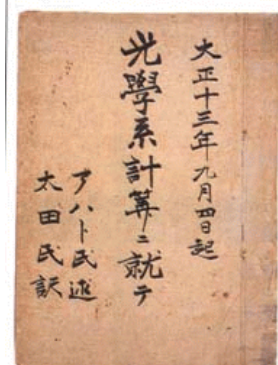 大正十三年九月四日起
光學系計算ニ就テ
アハト氏述
太田氏訳